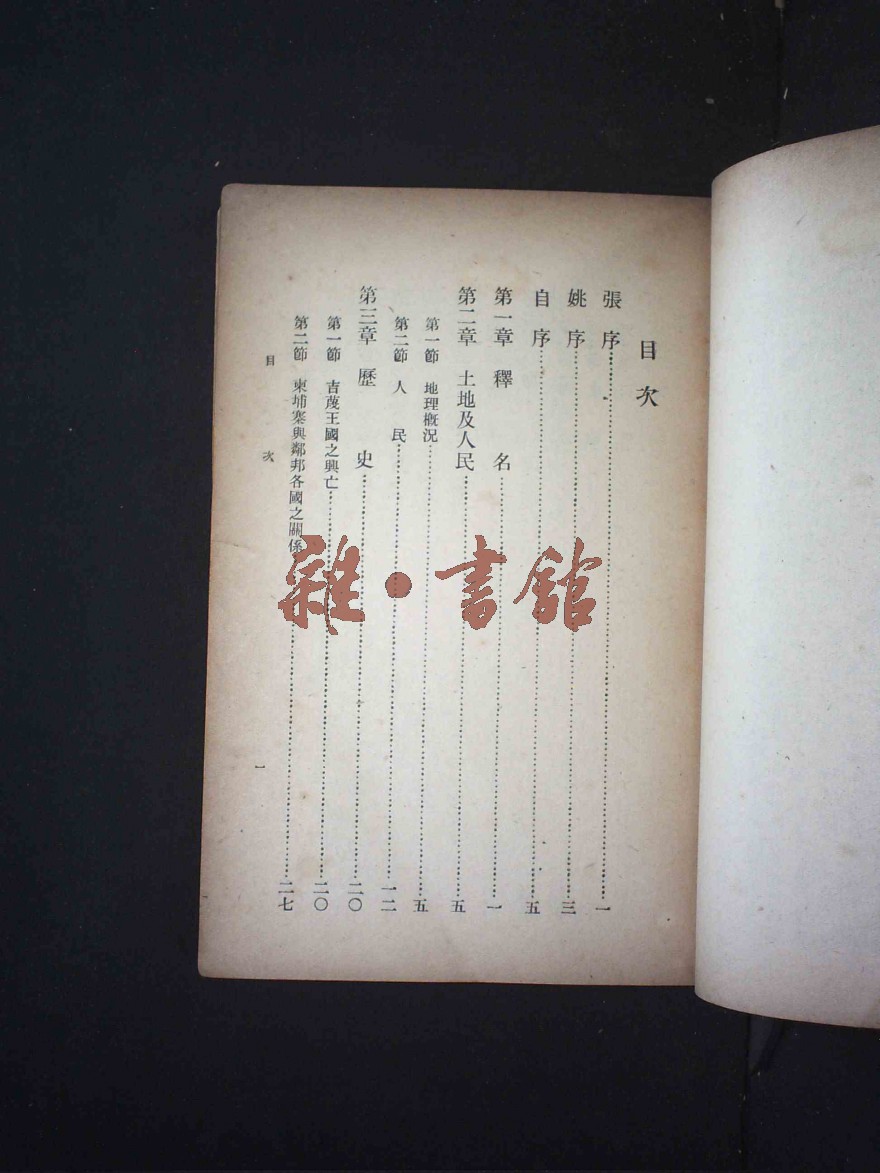 目次
張序……一
姚序……三
自序……五
第一章 釋名……一
第二章 土地及人民……五
第一節 地理概況……五
第二節 人民……一二
第三章 歷史……二〇
第一節 吉蔑王國之興亡……二〇
第二節 柬埔寨與鄰邦各國之關係……二七
目次
一
雜·書館